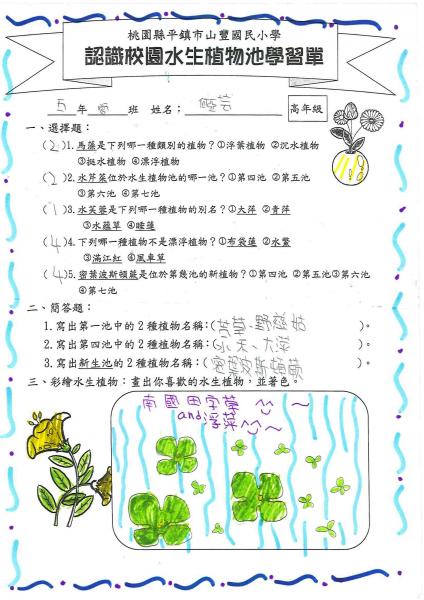 桃園縣平鎮市山豐國民小學
認識校園水生植物池學習單
五年 班 姓名： 高年級
一、選擇題：
(2)1.馬藻是下列哪一種類別的植物？①浮葉植物 ②沉水植物
③挺水植物 ④漂浮植物
(2)2.水芹菜位於水生植物池的哪一池？①第四池 ②第五池
③第六池 ④第七池
(1)3.水芙蓉是下列哪一種植物的別名？①大萍 ②青萍
③水蘊草 ④睡蓮
(4)4.下列哪一種植物不是漂浮植物？①布袋蓮 ②水鱉
③滿江紅 ④風車草
(4)5.密葉波斯頓蕨是位於第幾池的新植物？①第四池 ②第五池③第六池
④第七池
二、簡答題：
1.寫出第一池中的2種植物名稱：( 野慈姑 )。
2.寫出第四池中的2種植物名稱：( 大萍 )。
3.寫出新生池的2種植物名稱：(密葉波斯頓 )。
三、彩繪水生植物：畫出你喜歡的水生植物，並著色。
南國田字草 ^^ ~
and浮萍^^~